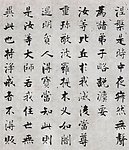 涅槃是時中夜寂然無聲
為諸弟子略說法要
汝等比丘於我滅後當尊
重珍敬波羅提木叉如闇
遇明貧人得寶當知此則
是汝大師若我住世無
異此也持淨戒者不得販